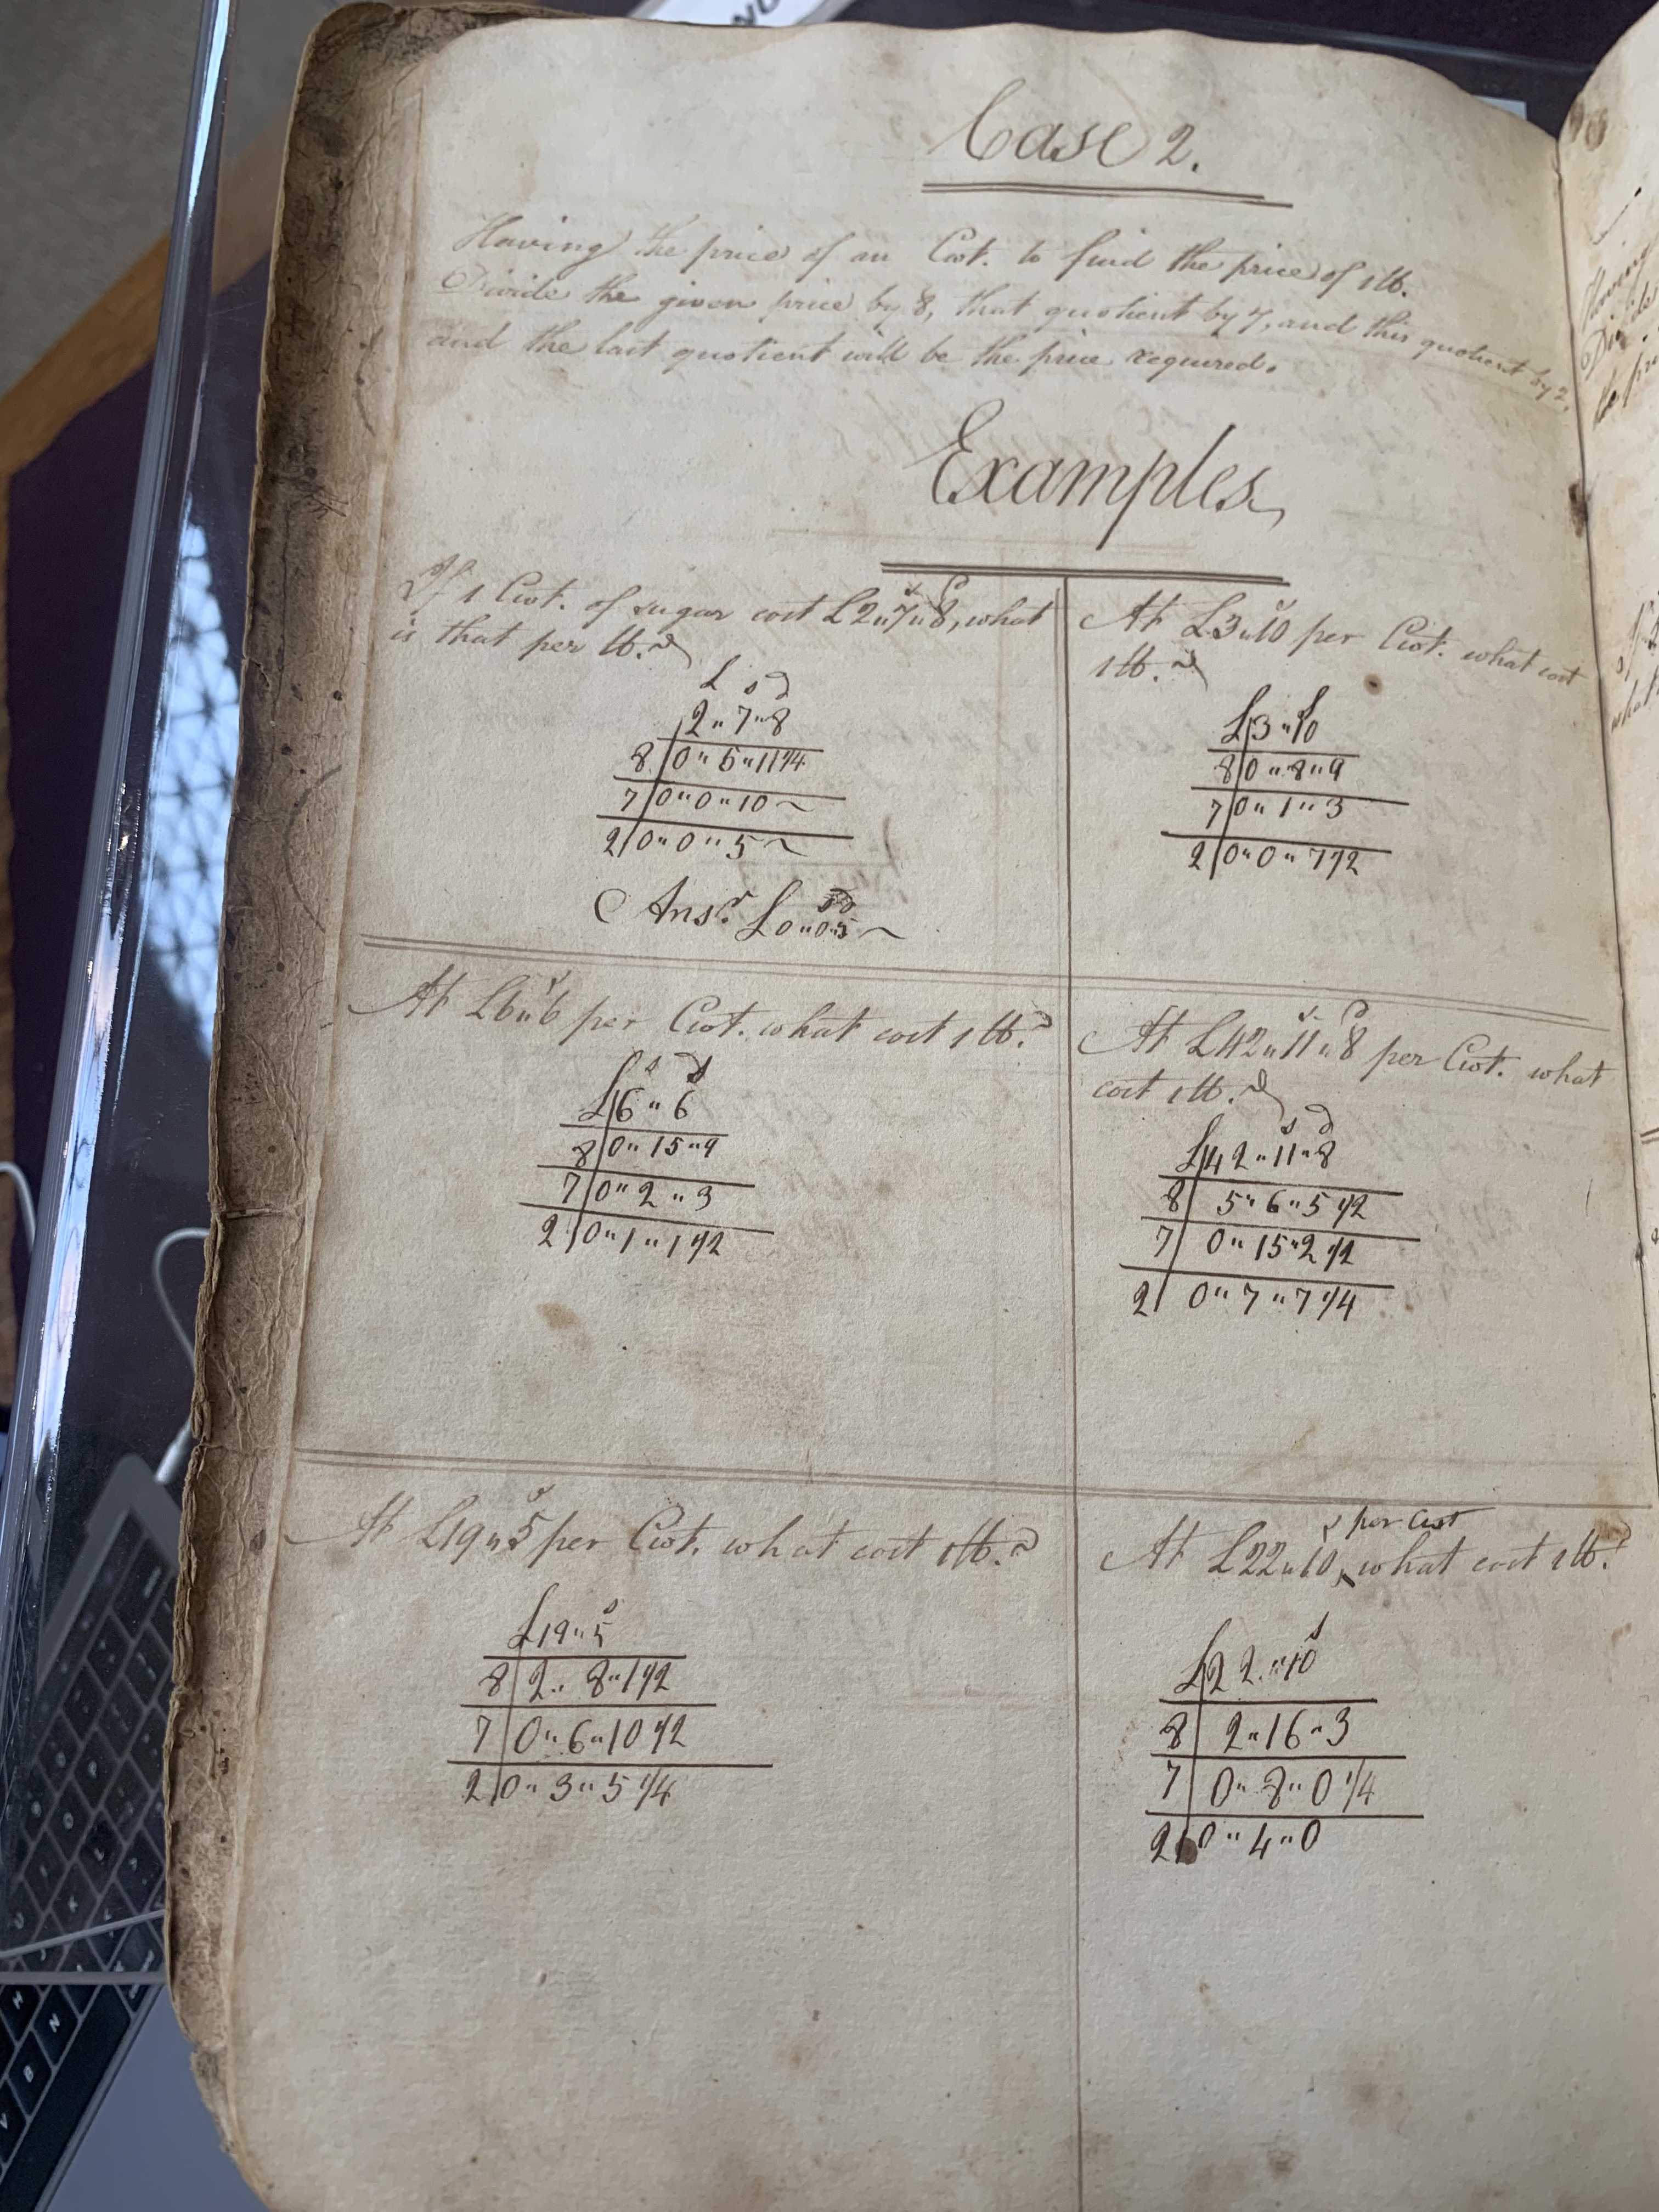 Case 2.
Having the price of an Cwt. to find the price of 1 lb.
Divide the given price by 8, that quotient by 7, and this quotient by 2,
and the last quotient will be the price required.
Examples
If 1 Cwt. of sugar cost £2"7"8, what
is that per lb.?
£ s d
2"7"8
8 0"5"11 1/4
7 0"0"10~
2 0"0"5~
Ansr. £0"0"5~
At £3"10 per Cwt. what cost
1 lb.?
£3"10
8 0"8"9
7 0"1"3
2 0"0"7 1/2
At £6"6 per Cwt. what cost 1 lb.?
£6"6
8 0"15"9
7 0"2"3
2 0"1"1 1/2
At £42"11"8 per Cwt. what
cost 1 lb.?
s d
£42"11"8
8 5"6"5 1/2
7 0"15"2 1/2
2 0"7"7 1/4
At £19"5 per Cwt. what cost 1 lb.?
£19"5
8 2"8"1 1/2
7 0"6"10 1/2
2 0"3"5 1/4
per Cwt
At £22"10, what cost 1 lb.?
£22"10
8 2"16"3
7 0"8"0 1/4
2 0"4"0